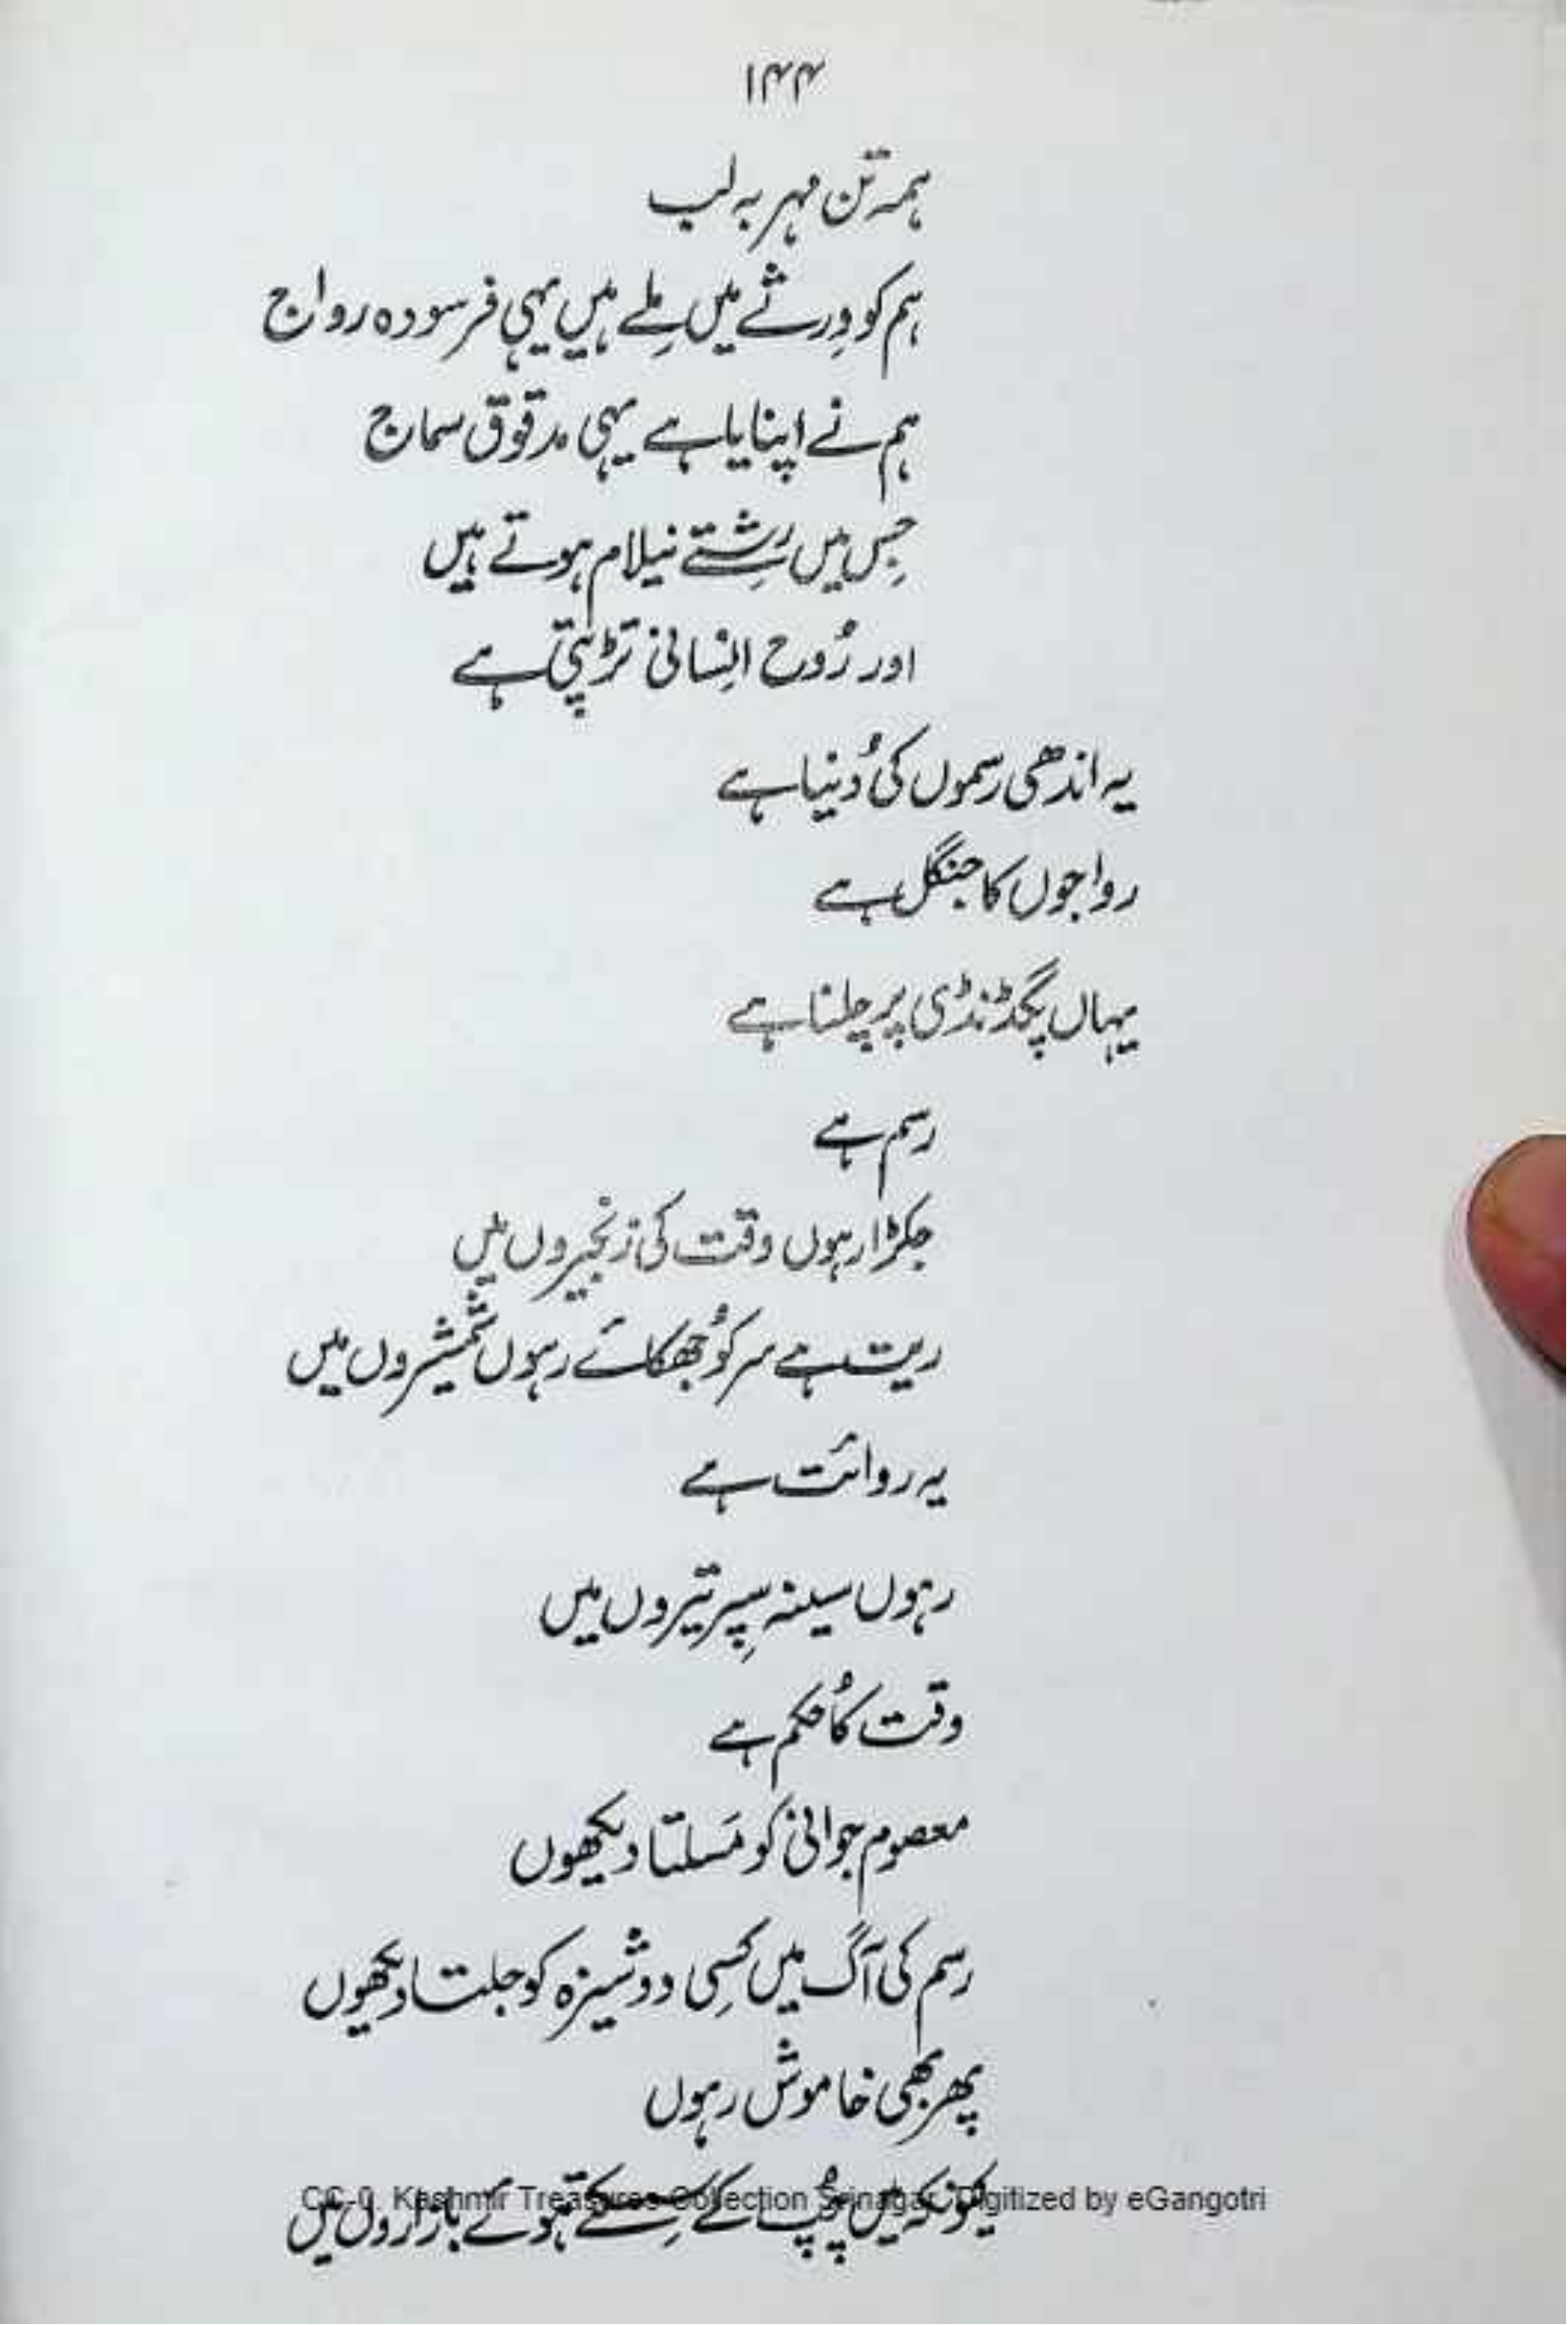 ۱۴۴
ہمہ تن مہر بہ لب
ہم کو وِرثے میں مِلے ہیں یہی فرسودہ رواج
ہم نے اپنایا ہے یہی مدقوق سماج
جِس میں رِشتے نیلام ہوتے ہیں
اور رُوح اِنسانی تڑپتی ہے
یہ اندھی رسموں کی دُنیا ہے
رواجوں کا جنگل ہے
یہاں پگڈنڈی پر چلنا ہے
رسم ہے
جکڑا رہوں وقت کی زنجیروں میں
ریت ہے سر کو جُھکائے رہوں شمشیروں میں
یہ روائت ہے
رہوں سینہ سِپر تیروں میں
وقت کا حُکم ہے
معصوم جوانی کو مَسلتا دیکھوں
رسم کی آگ میں کسِی دوشیزہ کو جلتا دیکھوں
پھر بھی خاموش رہوں
کیونکہ میں چُپ کے سِسکتے ہوئے بازاروں میں
CC-0. Kashmir Treasures Collection Srinagar. Digitized by eGangotri